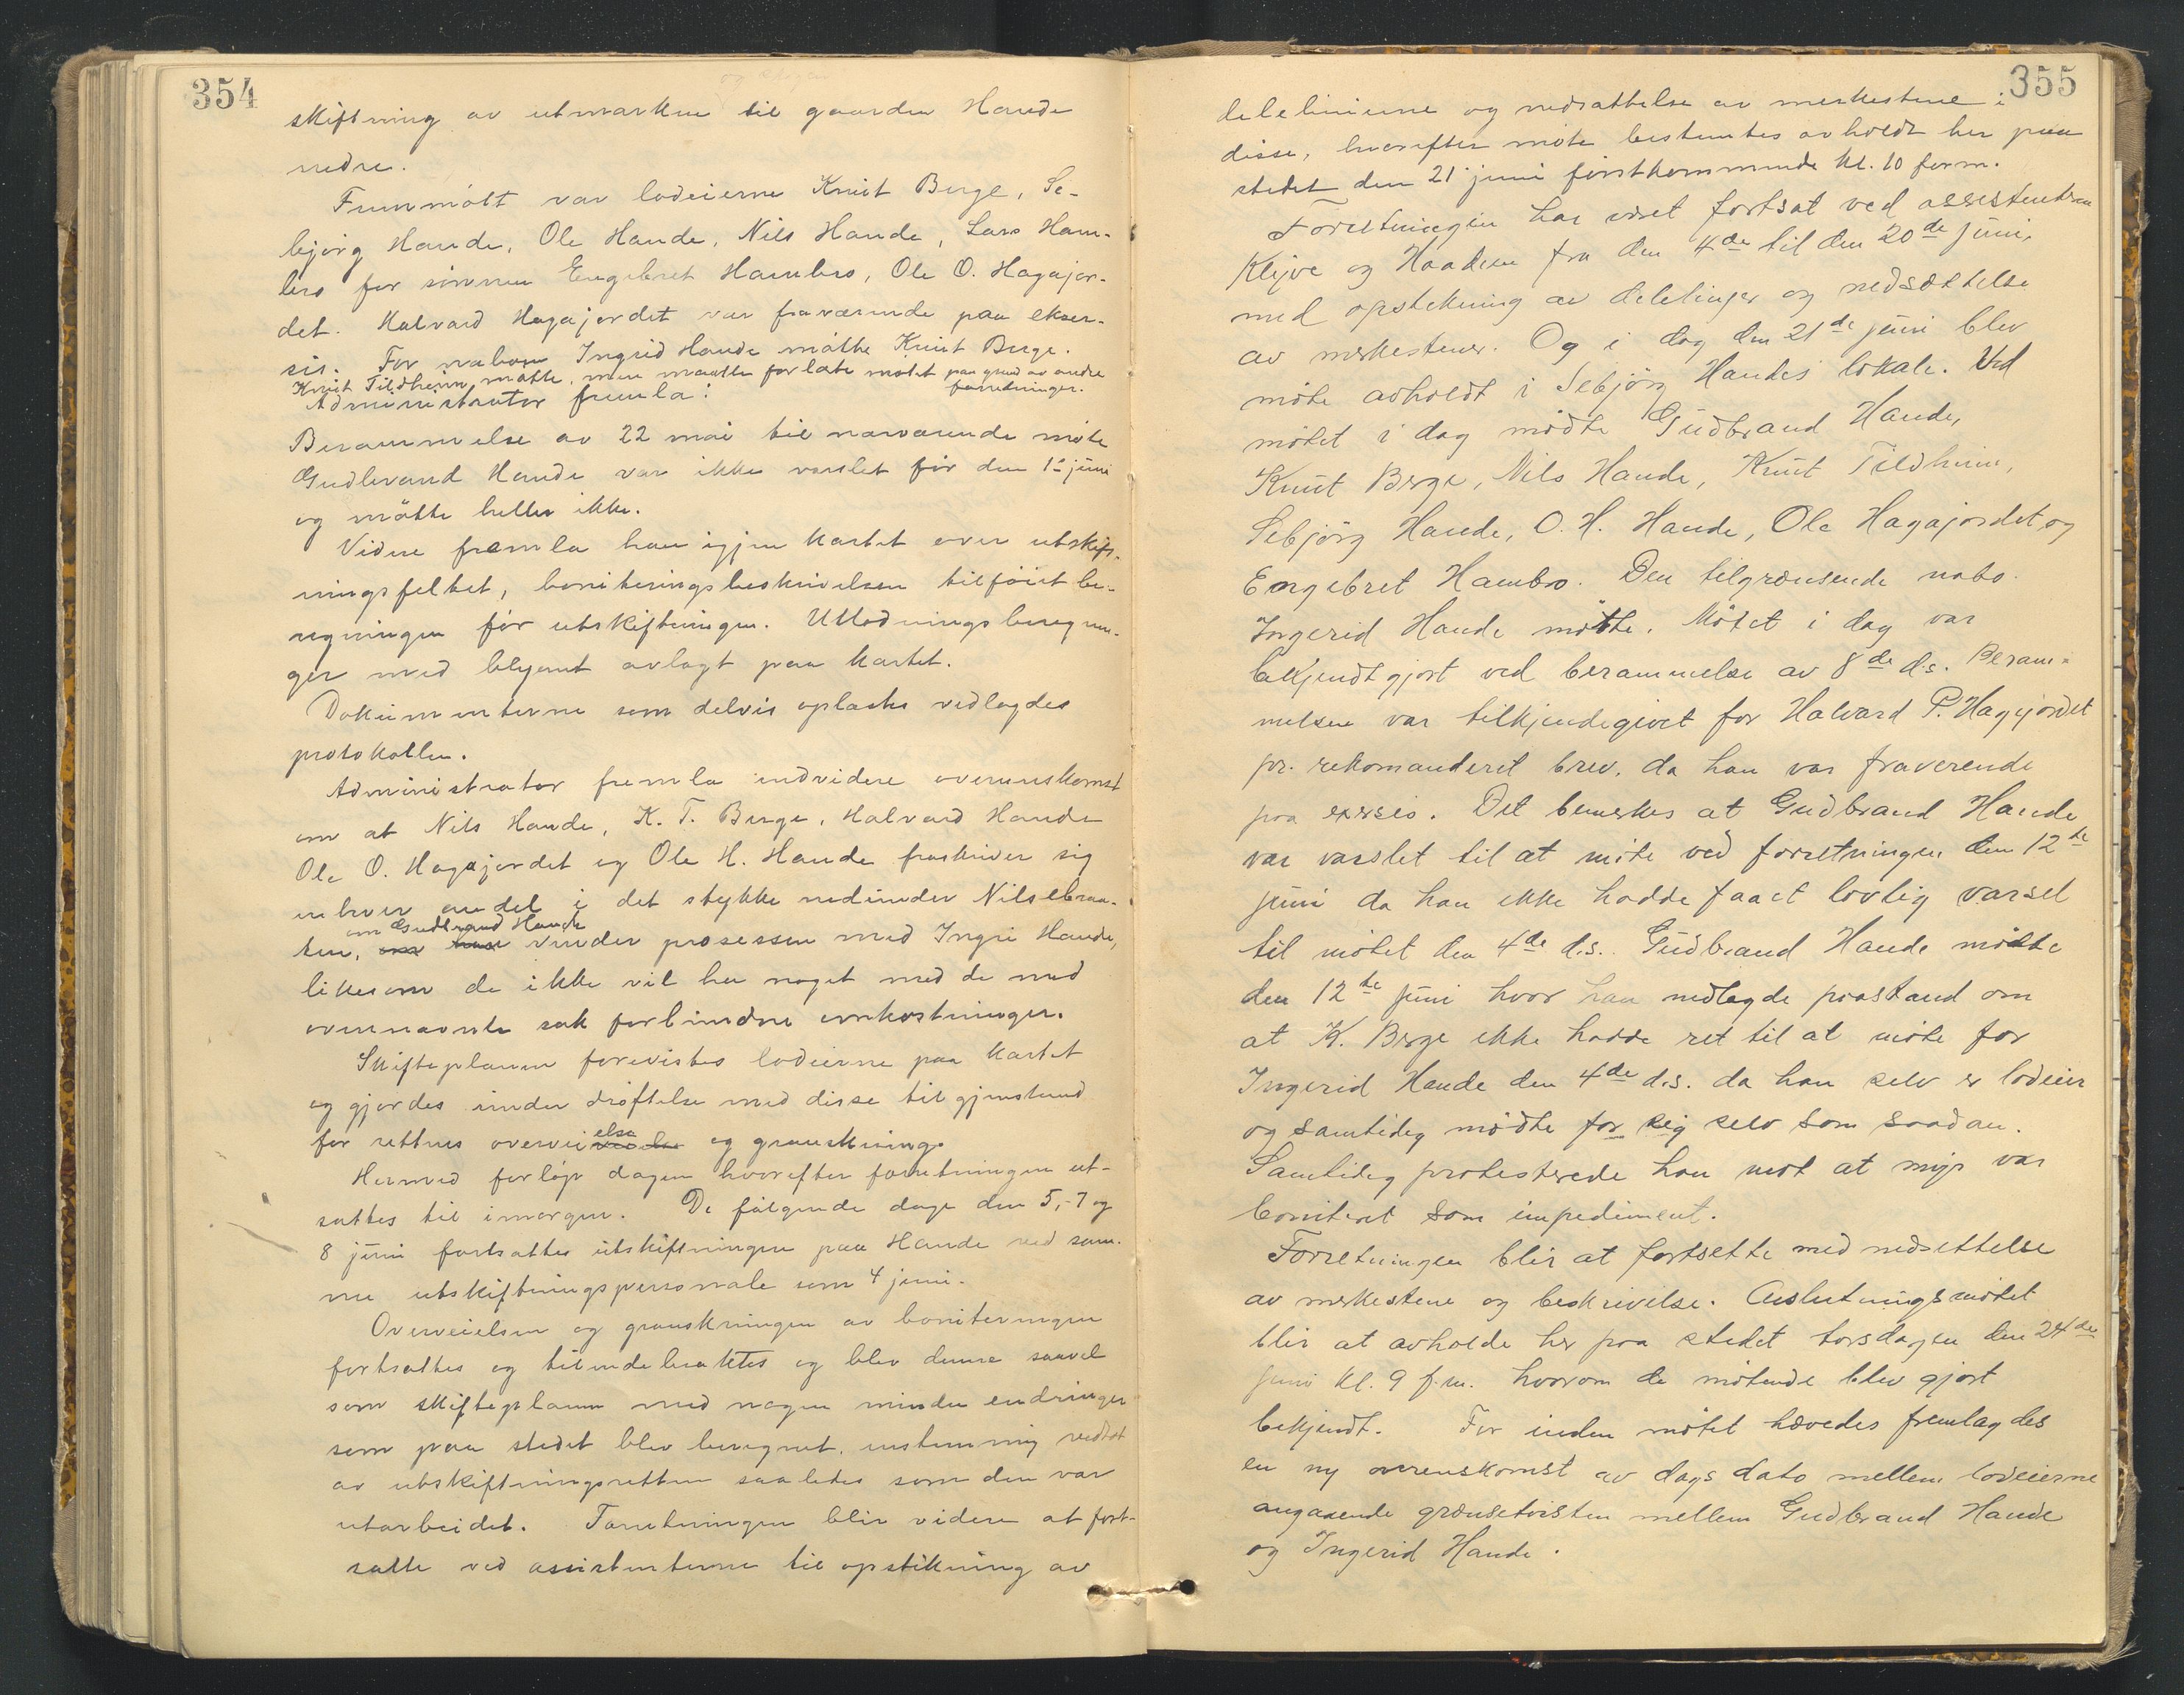 354
skiftning av utmarken til gaarden Hande
nedre.
Fremmøtt var lodeierne Knut Berge, Se-
bjørg Hande, Ole Hande, Nils Hande, Lars Ham-
bro for sønnen Engebret Hambro, Ole O. Hagajor-
det. Halvard Hagajordet var fraværende paa ekser-
sis. For naboen Ingrid Hande møtte Knut Berge.
Knut Tildheim møtte, men maatte forlate møtet paa grund av andre
forretninger.
Administrator fremla:
Berammelse av 22 mai til nærværende møte
Gudbrand Hande var ikke varslet før den 1ste juni
og møtte heller ikke.
Videre fremla han igjen kartet over utskift-
ningsfeltet, boniteringsbeskrivelsen tilføiet be-
regningen før utskiftningen. Utlodningsberegnin-
ger med blyant avlagt paa kartet.
Dokumenterne som delvis oplæstes vedlagdes
protokollen.
Administrator fremla endvidere overenskomst
om at Nils Hande, K. T. Berge, Halvard Hande
Ole O. Hagajordet og Ole H. Hande fraskriver sig
enhver andel i det stykke nedunder Nilsebraa-
om Gudbrand Hande
ten, om han vinder prosessen med Ingri Hande,
likesom de ikke vil ha noget med de med
overnævnte sak forbundne omkostninger.
Skifteplanen forevistes lodeierne paa kartet
og gjordes under drøftelse med disse til gjenstand
for rettens overveielse og granskning.
Hermed forløp dagen hvorefter forretningen ut-
sattes til imorgen. De følgende dage den 5,-7 og
8 juni fortsattes utskiftningen paa Hande ved sam-
me utskiftningspersonale som 4 juni.
Overveielsen og granskningen av boniteringen
fortsattes og tilendebraktes og blev denne saavel
som skifteplanen med nogen mindre endringer
som paa stedet blev beregnet, enstemmig vedtat
av utskiftningsretten saaledes som den var
utarbeidet. Forretningen blir videre at fort-
sætte ved assistenterne til opstikning av
355
delelinierne og nedsættelse av merkestene i
disse, hvorefter møte bestemtes avholdt her paa
stedet den 21 juni førstkommende kl. 10 form.
Forretningen har været fortsat ved assistenterne
Klejve og Haadem fra den 4de til den 20de juni,
med opstikning av delelinjer og nedsættelse
av merkestener. Og i dag den 21de juni blev
møte avholdt i Sebjørg Handes lokale. Ved
møtet i dag mødte Gudbrand Hande,
Knut Berge, Nils Hande, Knut Tildheim,
Sebjørg Hande, O. H. Hande, Ole Hagajordet og
Engebret Hambro. Den tilgrænsende nabo
Ingerid Hande møtte. Møtet i dag var
bekjendtgjort ved berammelse av 8de d.s. Beram-
melsen var tilkjendegivet for Halvard P. Hagajordet
pr. rekomanderet brev, da han var fraverende
paa exersis. Det bemerkes at Gudbrand Hande
var varslet til at møte ved forretningen den 12te
juni da han ikke hadde faaet lovlig varsel
til møtet den 4de d.s. Gudbrand Hande møtte
den 12te juni hvor han nedlagde paastand om
at K. Berge ikke hadde ret til at møte for
Ingerid Hande den 4de d.s. da han selv er lodeier
og samtidig mødte for sig selv som saadan.
Samtidig protesterede han mot at myr var
boniteret som impediment.
Forretningen blir at fortsette med nedsettelse
av merkestene og beskrivelse. Avslutningsmøtet
blir at avholde her paa stedet torsdagen den 24de
juni kl. 9 f.m. hvorom de møtende blev gjort
bekjendt. Før inden møtet hævedes fremlagdes
en ny overenskomst av dags dato mellem lodeierne
angaaende grænsetvisten mellem Gudbrand Hande
og Ingerid Hande.